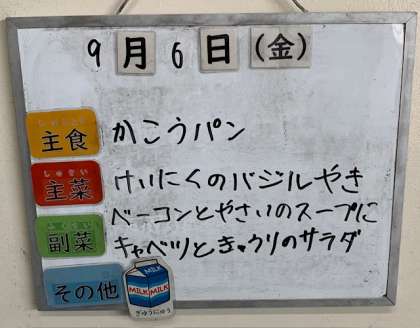 9月6日(金)
しゅしょく
主食 かこうパン
しゅさい
主菜 けいにくのバジルやき
ベーコンとやさいのスープに
ふくさい
副菜 キャベツときゅうりのサラダ
その他
MILK
MILK MILK
ぎゅうにゅう